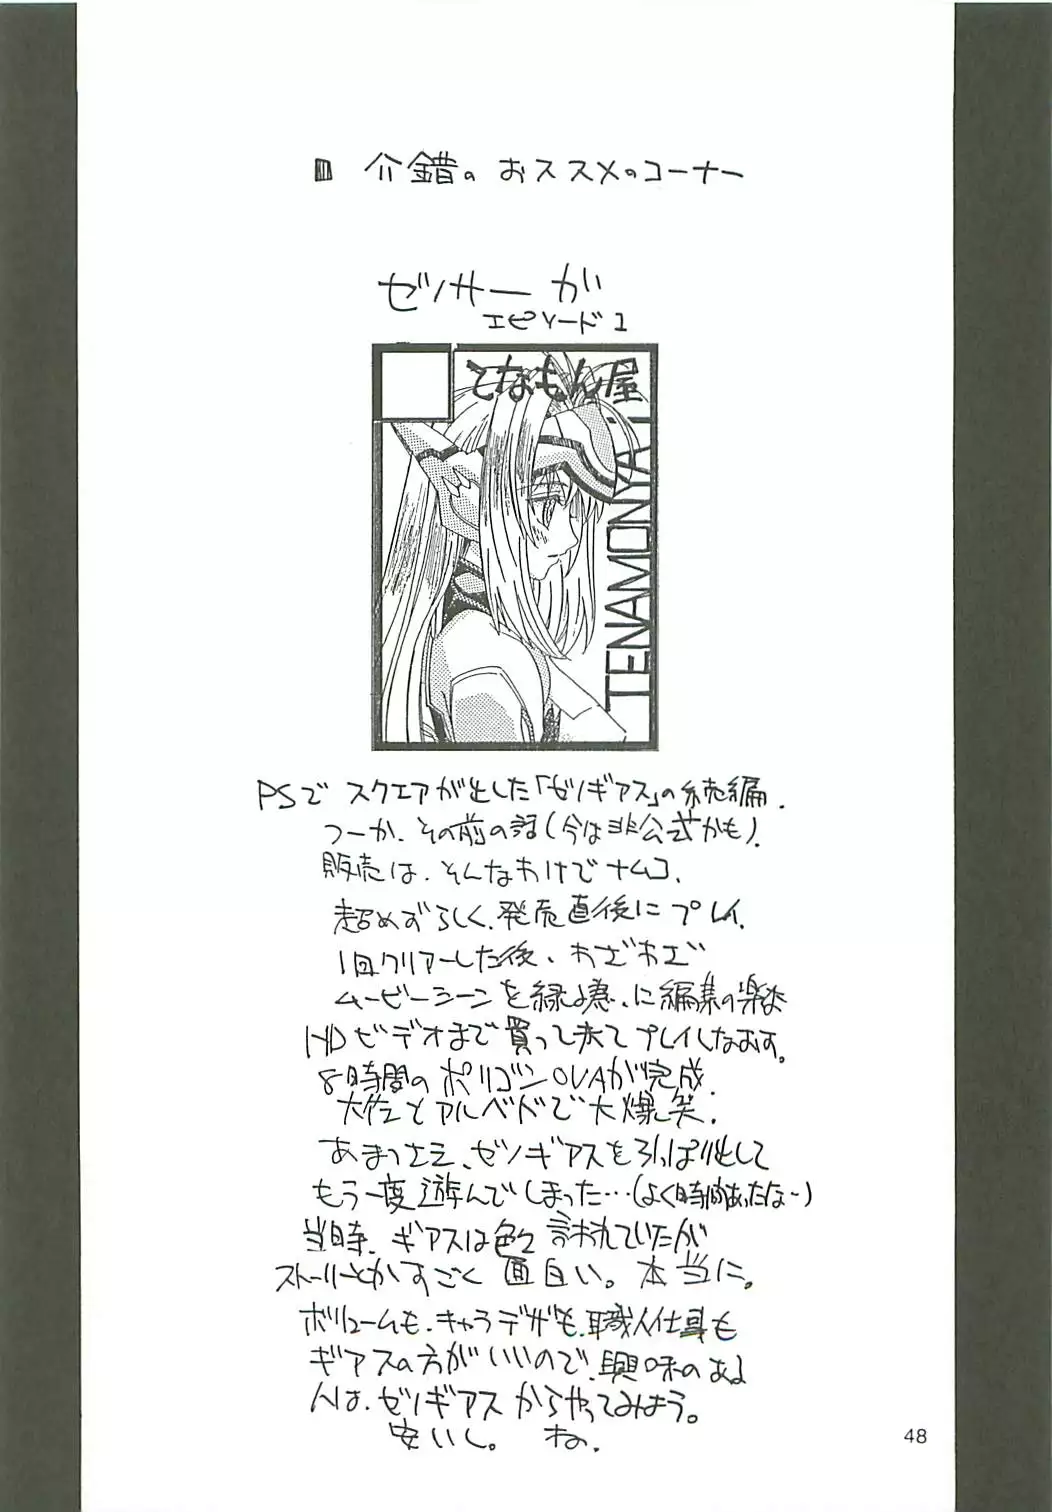 介錯の おススメのコーナー
ゼノサーガ
エピソード1
てなもん屋
TENAMONYA
PSで スクエアが出した「ゼノギアス」の続編.
つーか、その前の話(今は非公式かも).
販売は、そんなわけでナムコ.
超めずらしく、発売直後にプレイ.
1回クリアーした後、わざわざ
ムービーシーンを録る為、に編集の楽な
HDビデオまで買って来てプレイしなおす。
8時間のポリゴンOVAが完成.
大佐とアルベドで大爆笑.
あまつさえ、ゼノギアスを引っぱり出して
もう一度遊んでしまった…(よく時間あったな~)
当時、ギアスは色々言われていたが
ストーリーとかすごく面白い。本当に。
ボリュームも、キャラデザも、職人仕事も
ギアスの方がいいので、興味のある
人は、ゼノギアスからやってみよう。
安いし。 ねっ.
48